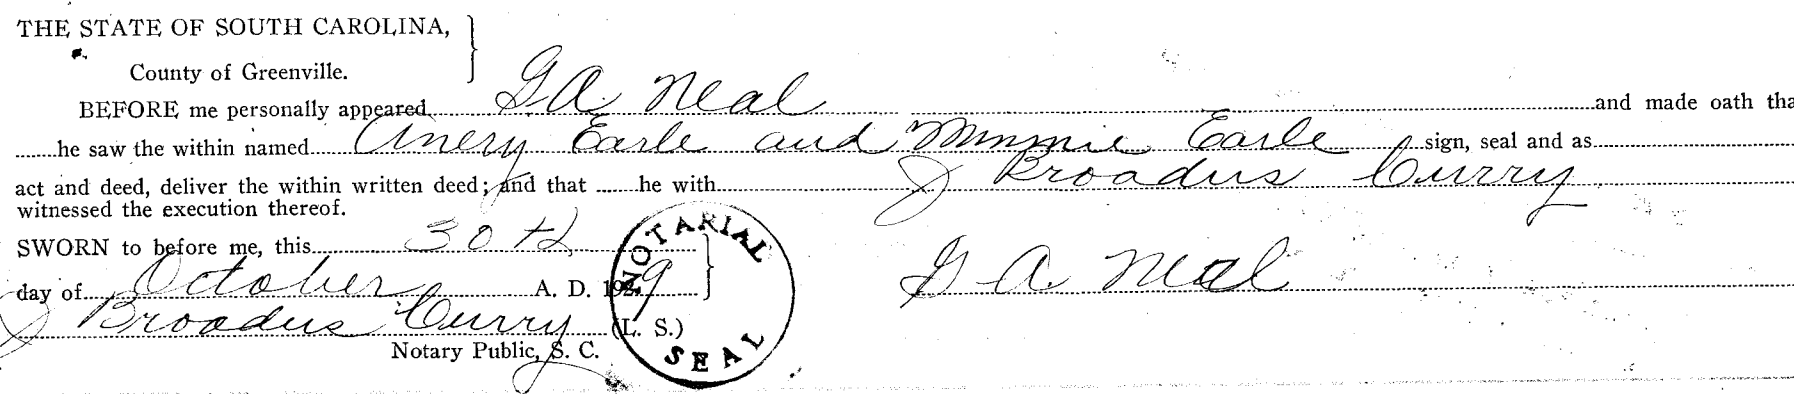 THE STATE OF SOUTH CAROLINA,
County of Greenville.
BEFORE me personally appeared G A Neal and made oath tha
he saw the within named Avery Earle and Minnie Earle sign, seal and as
act and deed, deliver the within written deed; and that he with J Broadus Curry
witnessed the execution thereof.
SWORN to before me, this 30th
day of October A. D. 1929
G A Neal
J Broadus Curry (L. S.)
Notary Public, S. C.
NOTARIAL
SEAL